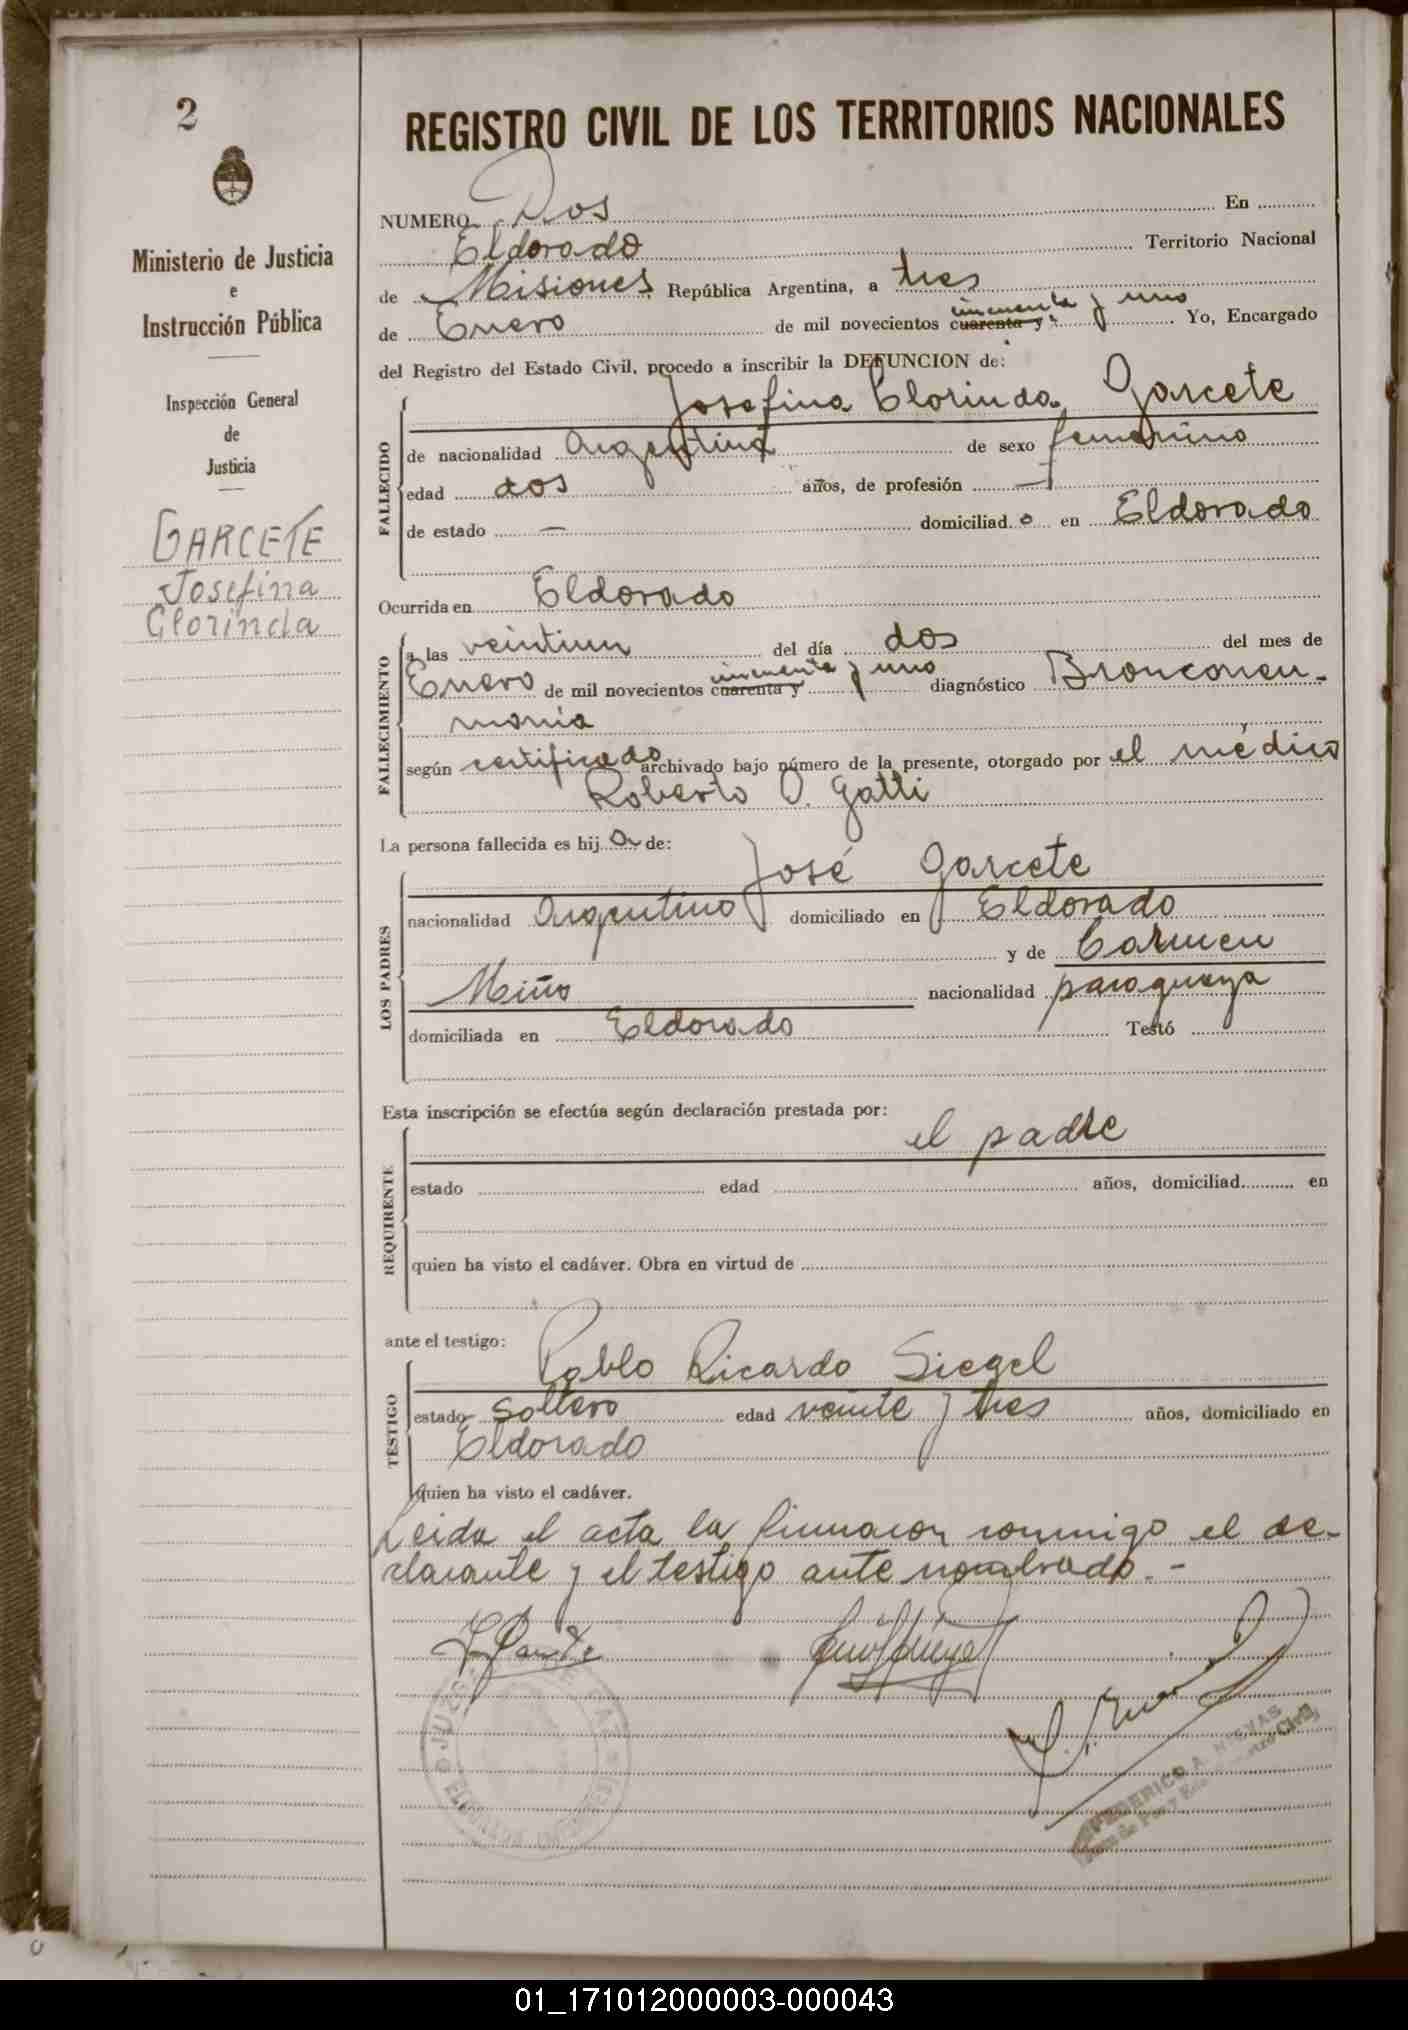 2
Ministerio de Justicia
e
Instrucción Pública
Inspección General
de
Justicia
GARCETE
Josefina
Clorinda
REGISTRO CIVIL DE LOS TERRITORIOS NACIONALES
NUMERO Dos En
Eldorado Territorio Nacional
de Misiones República Argentina, a tres
de Enero de mil novecientos cuarenta y cincuenta y uno Yo, Encargado
del Registro del Estado Civil, procedo a inscribir la DEFUNCION de:
FALLECIDO
Josefina Clorinda Garcete
de nacionalidad Argentina de sexo femenino
edad dos años, de profesión —
de estado — domiciliad o en Eldorado
Ocurrida en Eldorado
FALLECIMIENTO
a las veintiun del día dos del mes de
Enero de mil novecientos cuarenta y cincuenta y uno diagnóstico Bronconeu-
monia
según certificado archivado bajo número de la presente, otorgado por el médico
Roberto O. Gatti
La persona fallecida es hij a de:
LOS PADRES
José Garcete
nacionalidad Argentino domiciliado en Eldorado
y de Carmen
Miño nacionalidad paraguaya
domiciliada en Eldorado Testó
Esta inscripción se efectúa según declaración prestada por:
REQUIRENTE
el padre
estado edad años, domiciliad en
quien ha visto el cadáver. Obra en virtud de
ante el testigo:
TESTIGO
Pablo Ricardo Siegel
estado soltero edad veinte y tres años, domiciliado en
Eldorado
quien ha visto el cadáver.
Leida el acta la firmaron conmigo el de-
clarante y el testigo ante nombrado. -
FEDERICO A.
Juez de Paz y
01_171012000003-000043